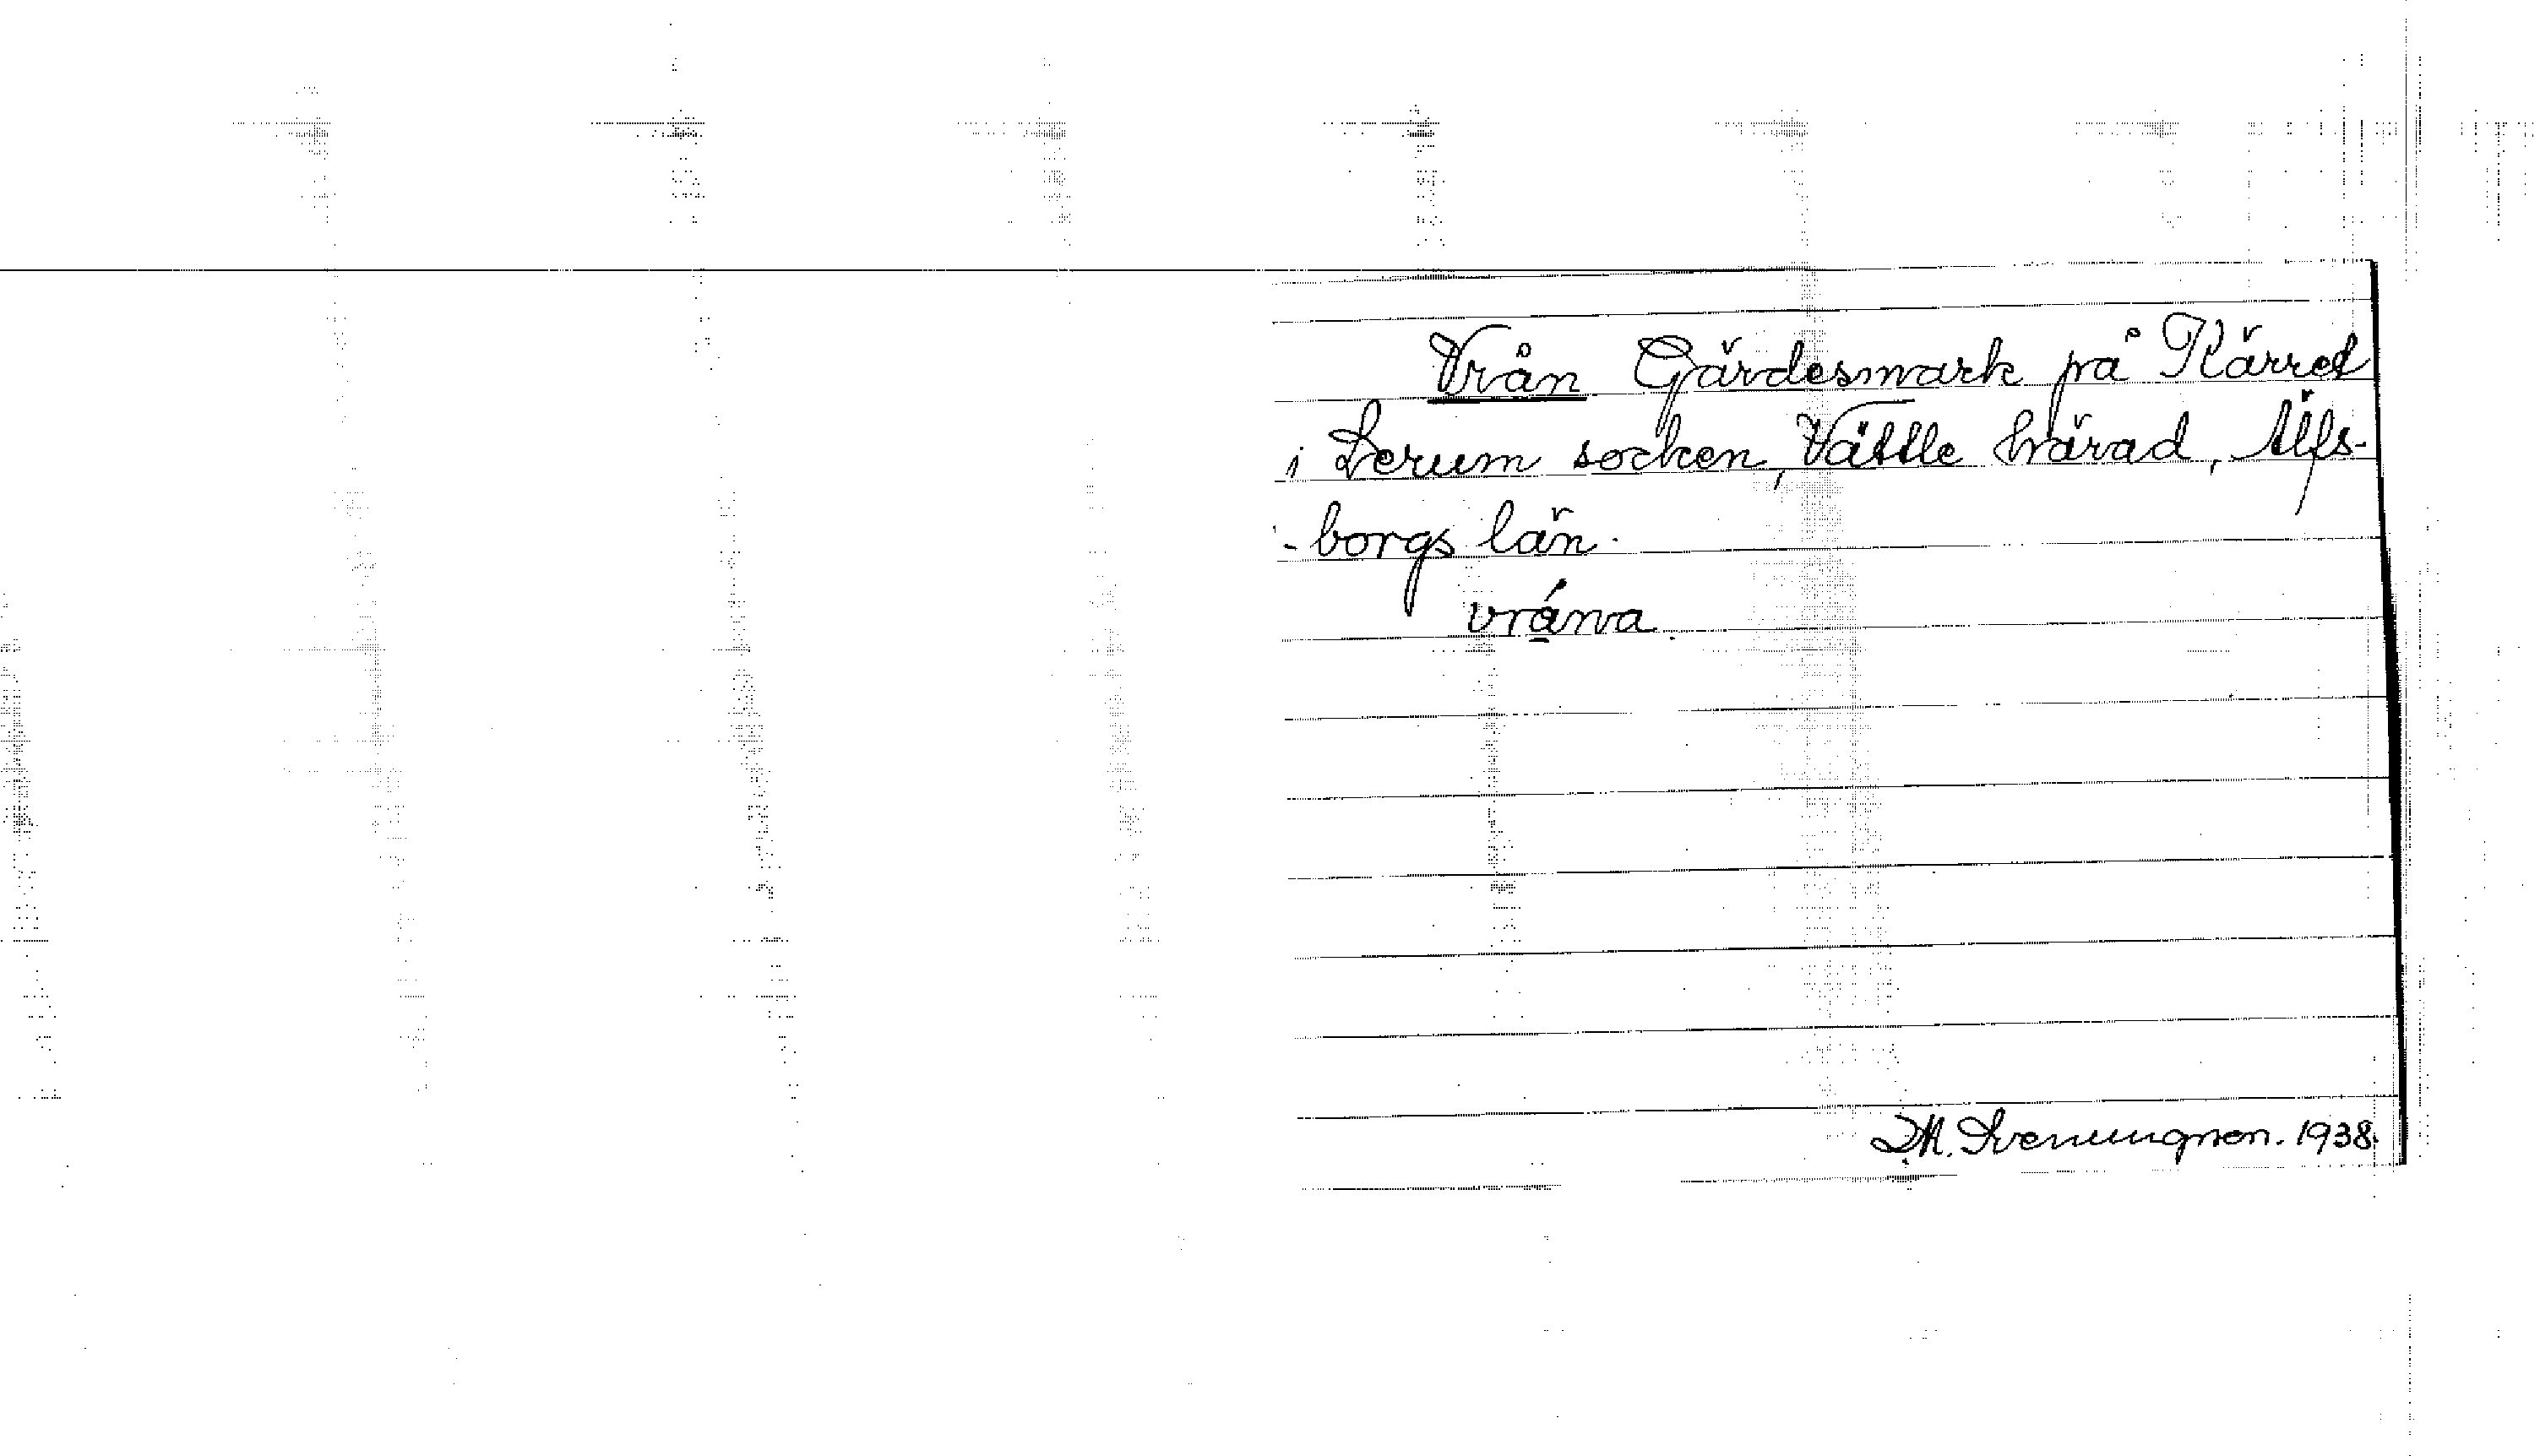 Vrån Gärdesmark på Kärret
i Lerum socken, Vättle härad, Älfs-
- borgs län.
vrána.
D.M. Svenungsson. 1938.